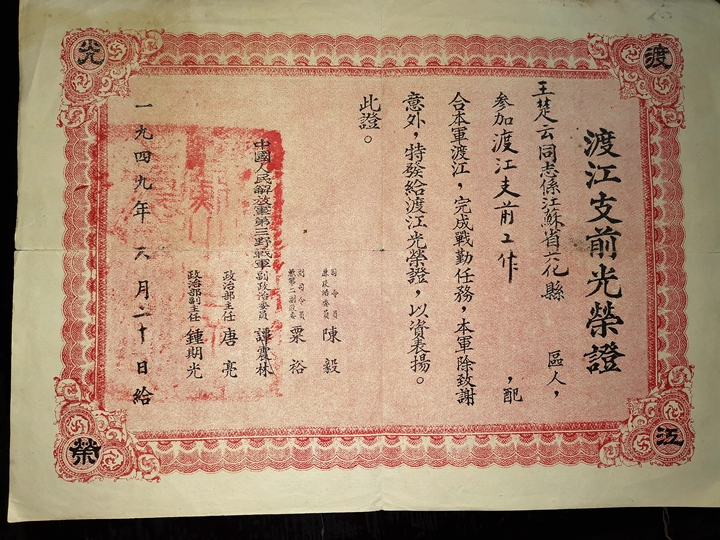 渡江光榮
渡江支前光榮證
王楚云同志係江蘇省六化縣　區人，
參加渡江支前工作　，配
合本軍渡江，完成戰勤任務，本軍除致謝
意外，特發給渡江光榮證，以資表揚。
此證。
司令員兼政治委員 陳毅
副司令員兼第二副政委 粟裕
中國人民解放軍第三野戰軍副政治委員 譚震林
政治部主任 唐亮
政治部副主任 鍾期光
一九四九年 六月二十日給